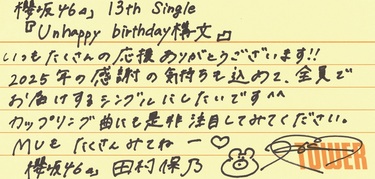 櫻坂46 13th Single
『Unhappy birthday構文』
いつもたくさんの応援ありがとうございます!!
2025年の感謝の気持ちも込めて、全員で
お届けするシングルにしたいです^^
カップリング曲にも是非注目してみてください。
MVもたくさんみてねー♡
櫻坂46 田村保乃
TOWER